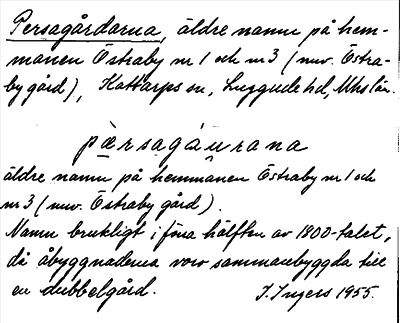 Persagårdarna, äldre namn på hem-
manen Östraby nr 1 och nr 3 (nuv. Östra-
by gård), Kattarps sn, Luggude hd, Mhs län.
pärsagáurana
äldre namn på hemmanen Östraby nr 1 och
nr 3 (nuv. Östraby gård).
Namn brukligt i förra hälften av 1800-talet,
då åbyggnaderna voro sammanbyggda till
en dubbelgård.
I. Ingers 1955.